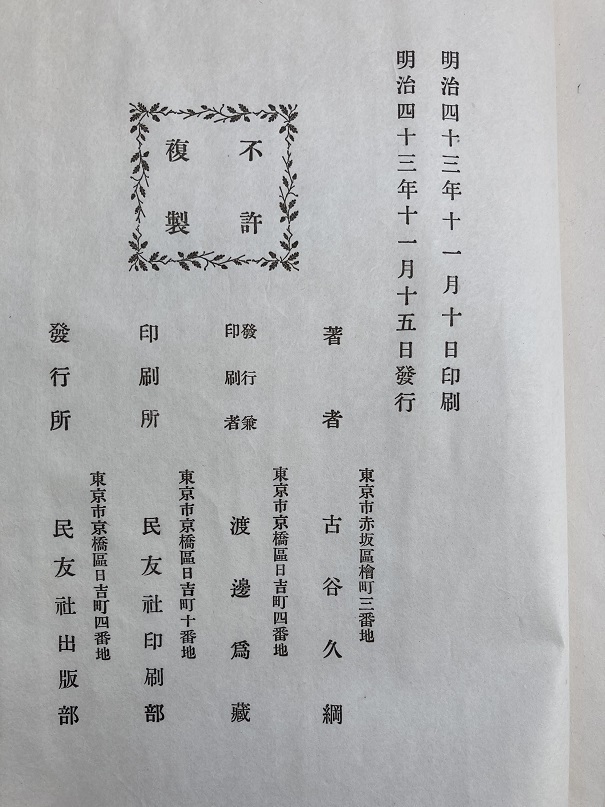 明治四十三年十一月十日印刷
明治四十三年十一月十五日發行
不許
複製
東京市赤坂區檜町三番地
著者 古谷久綱
東京市京橋區日吉町四番地
發行兼
印刷者 渡邊爲藏
東京市京橋區日吉町十番地
印刷所 民友社印刷部
東京市京橋區日吉町四番地
發行所 民友社出版部